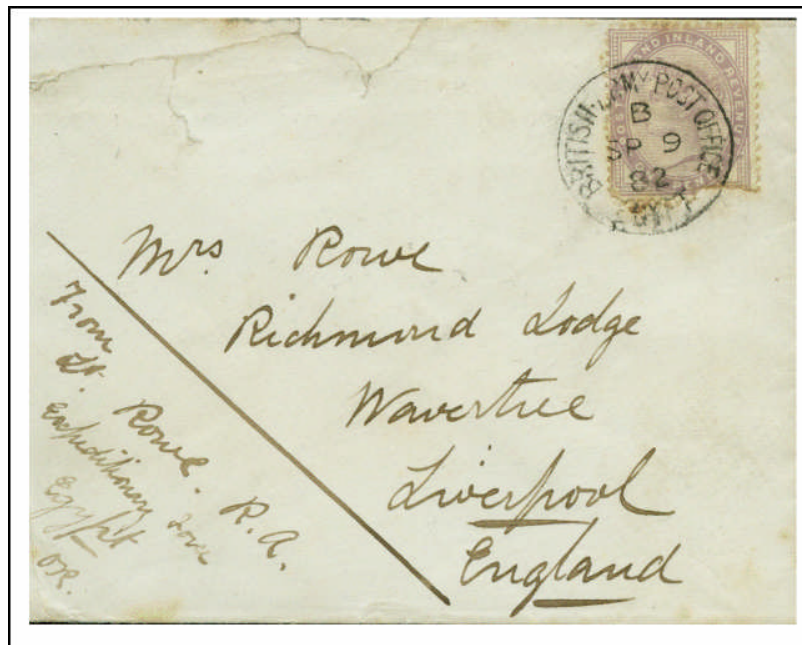 POSTAGE AND INLAND REVENUE
BRITISH ARMY POST OFFICE
B
SP 9
82
EGYPT
Mrs Rowe
Richmond Lodge
Wavertree
Liverpool
England
From
Lt. Rowe. R.A.
Expeditionary Force
Egypt